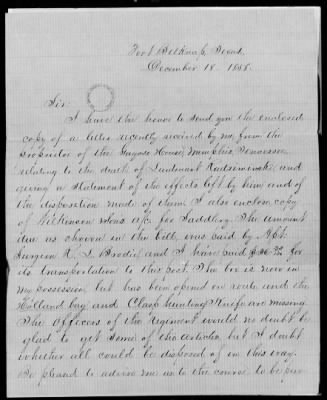 Fort Belknap, Texas.
December 18. 1858.
Sir.
I have the honor to send you the enclosed
copy of a letter recently received by me from the
proprietor of the Gayoso House, Memphis Tennessee
relating to the death of Lieutenant Radziminski and
giving a statement of the effects left by him and of
the disposition made of them. I also enclose copy
of Wilkinson & Sons a/c. for Saddlery. The amount
due as shown in the bill, was paid by Asst.
Surgeon R. L. Brodie and I have paid for
its transportation to this post. The box is now in
my possession, but has been opened en route and the
Holland bag and Clasp hunting Knife are missing.
The Officers of the Regiment would no doubt be
glad to get some of the articles but I doubt
whether all could be disposed of in this way.
Be pleased to advise me as to the course to be pur